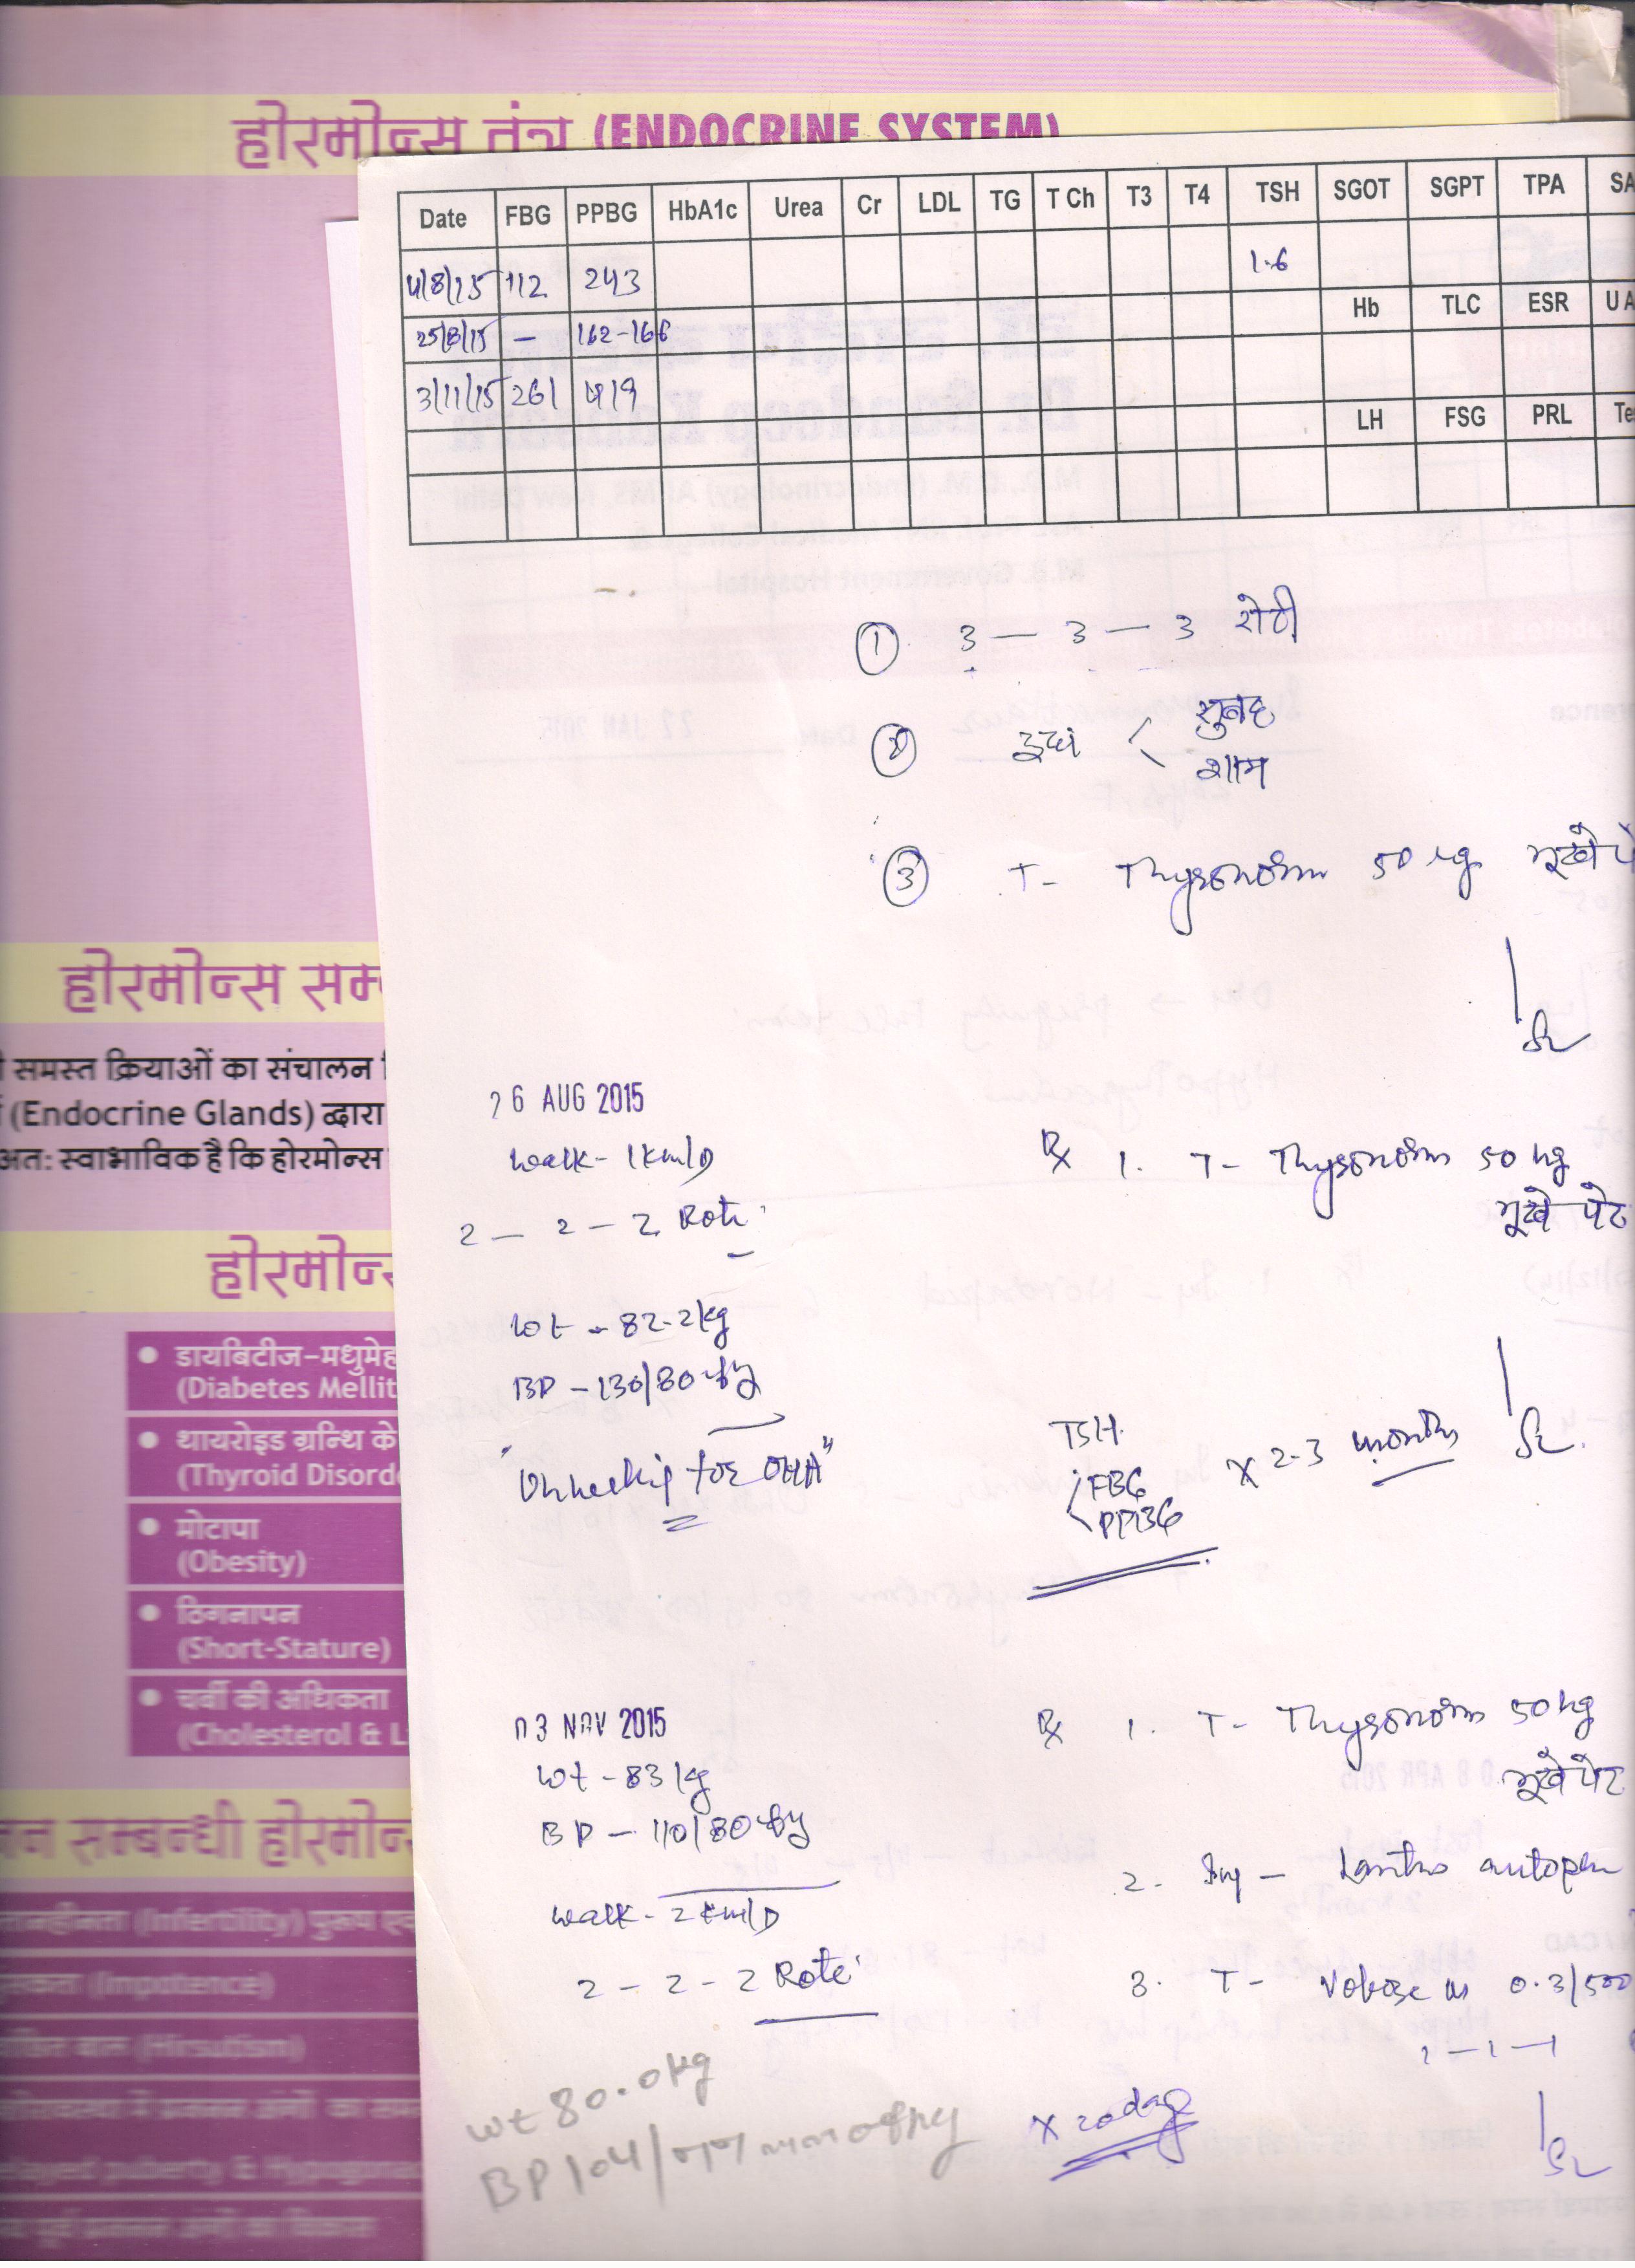 होरमोन्स तंत्र (ENDOCRINE SYSTEM)
Date FBG PPBG HbA1c Urea Cr LDL TG T Ch T3 T4 TSH SGOT SGPT TPA SA
4/8/15 112 243 1.6
Hb TLC ESR UA
25/8/15 – 162-166
3/11/15 261 419
LH FSG PRL Te
① 3 — 3 — 3 रोटी
② दूध < सुबह
शाम
③ T- Thyronorm 50 μg भूखे पे
26 AUG 2015
Walk - 1 km/D
2 — 2 — 2 Roti
Wt - 82.2 kg
BP - 130/80
"Unwilling for OHA"
Rx 1. T- Thyronorm 50 μg
भूखे पेट
TSH
FBG
PPBG
x 2-3 months
03 NOV 2015
Wt - 83 kg
BP - 110/80
Walk - 2 km/D
2 - 2 - 2 Roti
Rx 1. T- Thyronorm 50 μg
भूखे पेट
2. Inj - Lantus autopen
3. T- Vobose M 0.3/500
1 — 1 — 1
x 20 days
wt 80.0 kg
BP 104/
होरमोन्स सम
समस्त क्रियाओं का संचालन
(Endocrine Glands) द्वारा
अत: स्वाभाविक है कि होरमोन्स
होरमोन्स
• डायबिटीज-मधुमेह
(Diabetes Mellit
• थायरोइड ग्रन्थि के
(Thyroid Disord
• मोटापा
(Obesity)
• ठिगनापन
(Short-Stature)
• चर्बी की अधिकता
(Cholesterol & L
सम्बन्धी होरमोन्स
(Infertility)
(Impotence)
(Hirsutism)